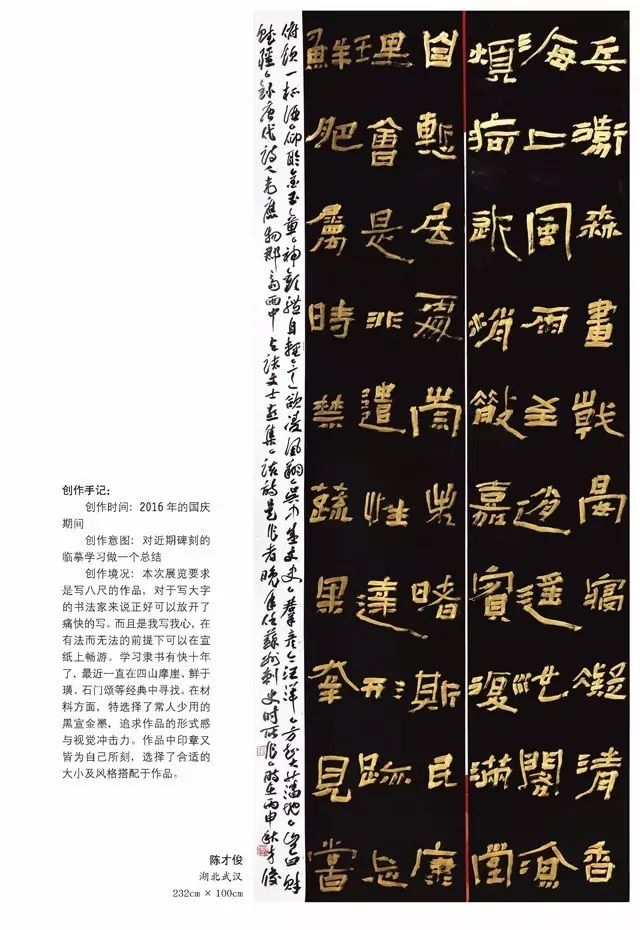 兵衛森畫戟晏寢凝清香
海上風雨至逍遥池閣涼
煩疴近消散嘉賓復滿堂
自慙居處崇未睹斯民康
理會是非遣性達形跡忘
鮮肥屬時禁蔬果幸見嘗
俯飲一杯酒仰聆金玉章神歡體自輕意欲凌風翔吳中盛文史羣彦今汪洋方知大藩地豈曰財
賦疆錄唐代詩人韋應物郡齋雨中與諸文士燕集該詩是作者晚年任蘇州刺史時所作時在丙申秋才俊
创作手记：
创作时间：2016年的国庆
期间
创作意图：对近期碑刻的
临摹学习做一个总结
创作境况：本次展览要求
是写八尺的作品，对于写大字
的书法家来说正好可以放开了
痛快的写。而且是我写我心，在
有法而无法的前提下可以在宣
纸上畅游。学习隶书有快十年
了，最近一直在四山摩崖、鲜于
璜、石门颂等经典中寻找。在材
料方面，特选择了常人少用的
黑宣金墨，追求作品的形式感
与视觉冲击力。作品中印章又
皆为自己所刻，选择了合适的
大小及风格搭配于作品。
陈才俊
湖北武汉
232cm × 100cm